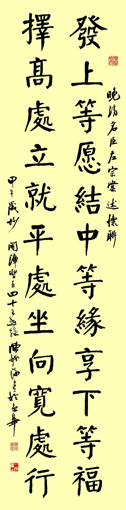 晚清名臣左宗棠述懷聯
發上等愿結中等緣享下等福
擇高處立就平處坐向寬處行
甲午歲杪